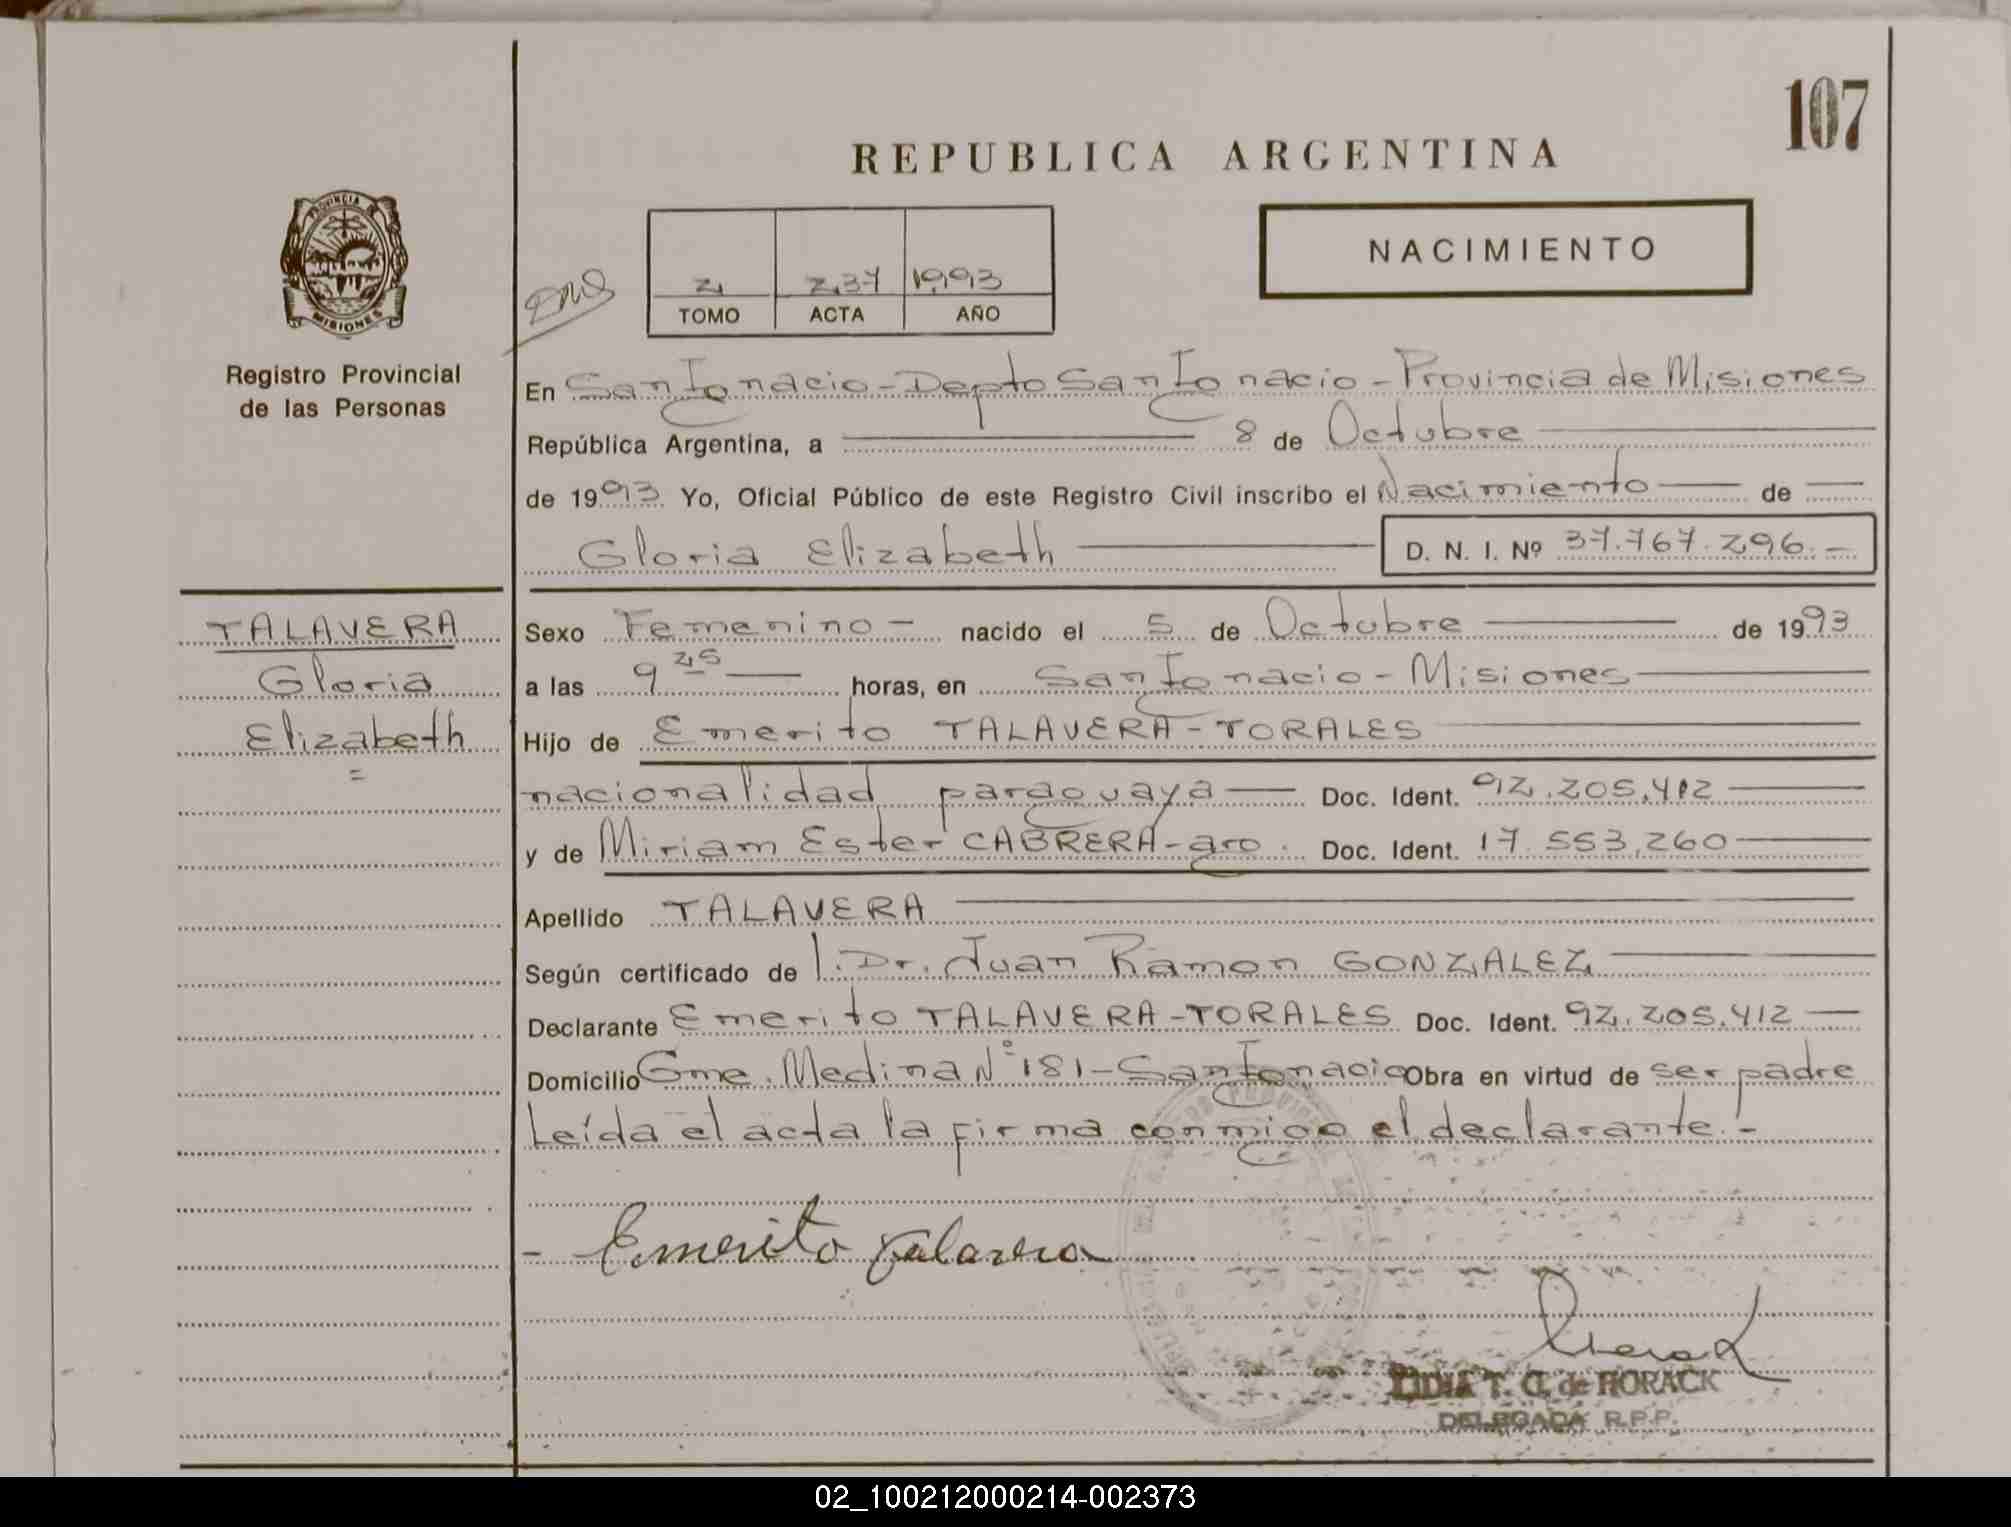 107
REPUBLICA ARGENTINA
NACIMIENTO
2 237 1993
TOMO ACTA AÑO
PROVINCIA DE
MISIONES
Registro Provincial
de las Personas
En San Ignacio - Depto San Ignacio - Provincia de Misiones
República Argentina, a 8 de Octubre
de 1993 Yo, Oficial Público de este Registro Civil inscribo el Nacimiento de
Gloria Elizabeth D. N. I. Nº 37.767.296.-
TALAVERA
Gloria
Elizabeth
=
Sexo Femenino - nacido el 5 de Octubre de 1993
a las 9 25 horas, en San Ignacio - Misiones
Hijo de Emerito TALAVERA - TORALES
nacionalidad paraguaya Doc. Ident. 92.205.412
y de Miriam Ester CABRERA - arg. Doc. Ident. 17.553.260
Apellido TALAVERA
Según certificado de l. Dr. Juan Ramon GONZALEZ
Declarante Emerito TALAVERA - TORALES Doc. Ident. 92.205.412
Domicilio Gme. Medina Nº 181 - San Ignacio Obra en virtud de ser padre
Leída el acta la firma conmigo el declarante.-
- Emerito Talavera
LIDIA T. G. de HORACK
DELEGADA R.P.P.
02_100212000214-002373